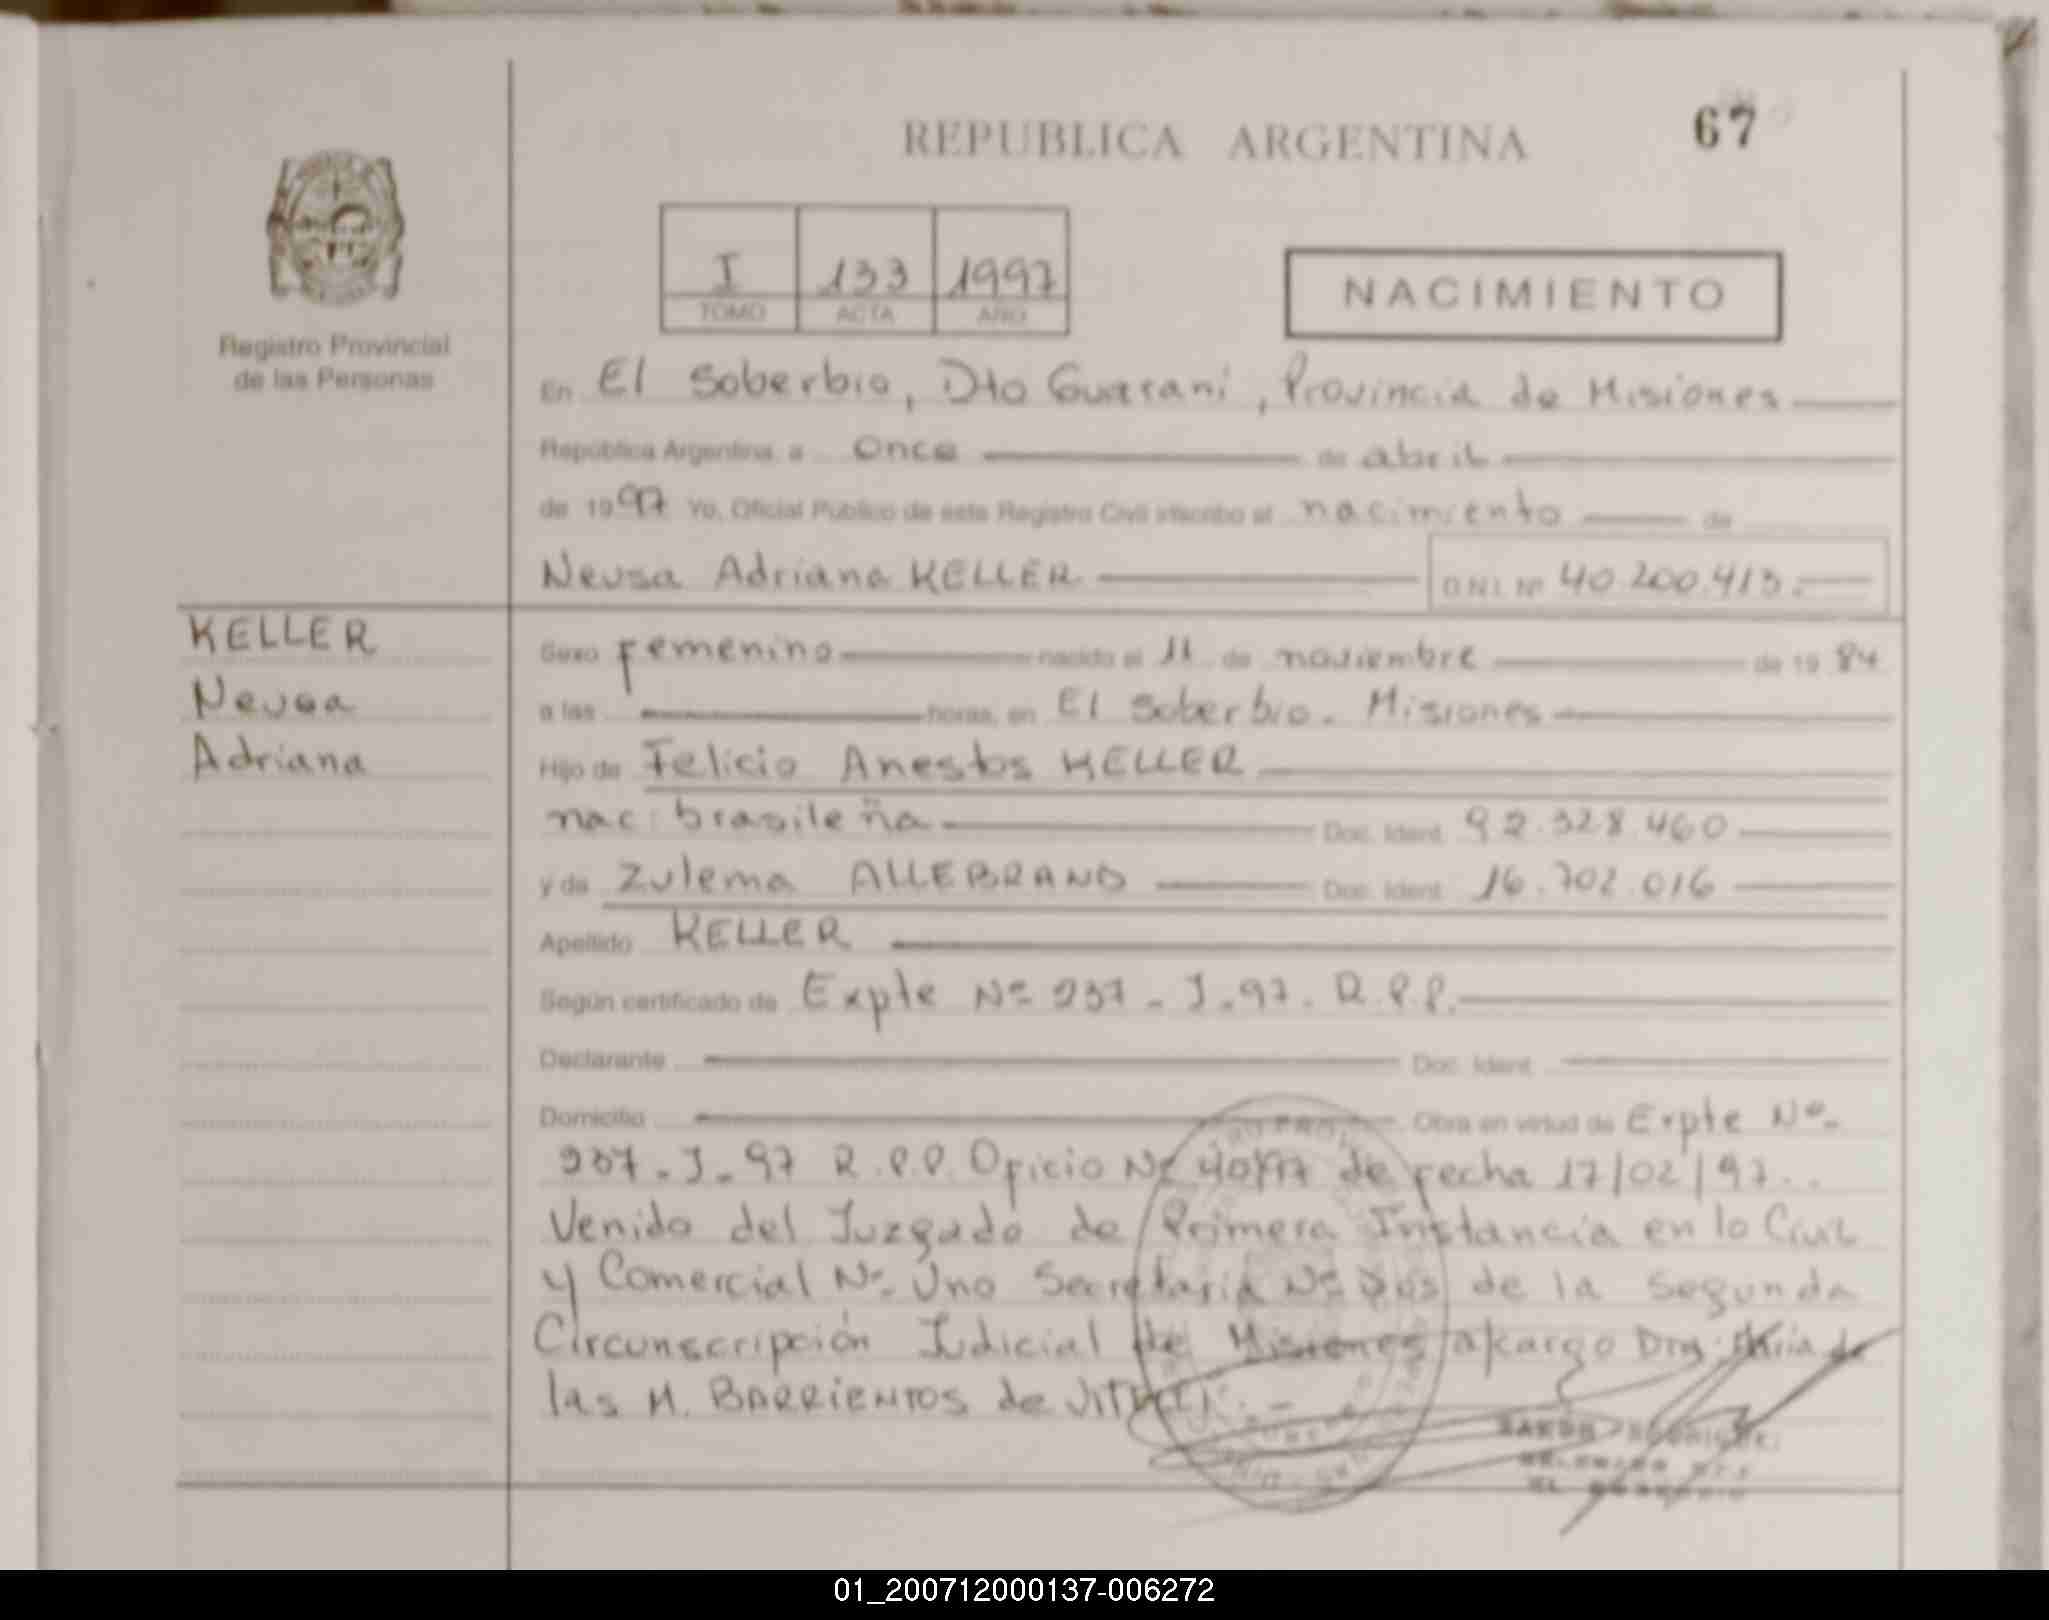 67
REPUBLICA ARGENTINA
I 133 1997
TOMO ACTA AÑO
NACIMIENTO
Registro Provincial
de las Personas
En El Soberbio, Dto Guarani, Provincia de Misiones
República Argentina, a once de abril
de 1997 Yo, Oficial Público de este Registro Civil inscribo el nacimiento de
Neusa Adriana KELLER D.N.I. Nº 40.200.413.
KELLER
Neusa
Adriana
Sexo femenino nacido el 11 de noviembre de 1984
a las horas, en El Soberbio. Misiones
Hijo de Felicio Anestos KELLER
nac: brasileña Doc. Ident. 92.328.460
y de Zulema ALLEBRAND Doc. Ident. 16.702.016
Apellido KELLER
Según certificado de Expte Nº 937 - J - 97. R.P.P.
Declarante Doc. Ident.
Domicilio Obra en virtud de Expte Nº
937 - J - 97 R.P.P. Oficio Nº 40/97 de fecha 17/02/97.
Venido del Juzgado de Primera Instancia en lo Civil
y Comercial Nº Uno Secretaria Nº Dos de la Segunda
Circunscripción Judicial de Misiones a/cargo Dra. Maria de
las M. BARRIENTOS de
EL SOBERBIO
01_200712000137-006272